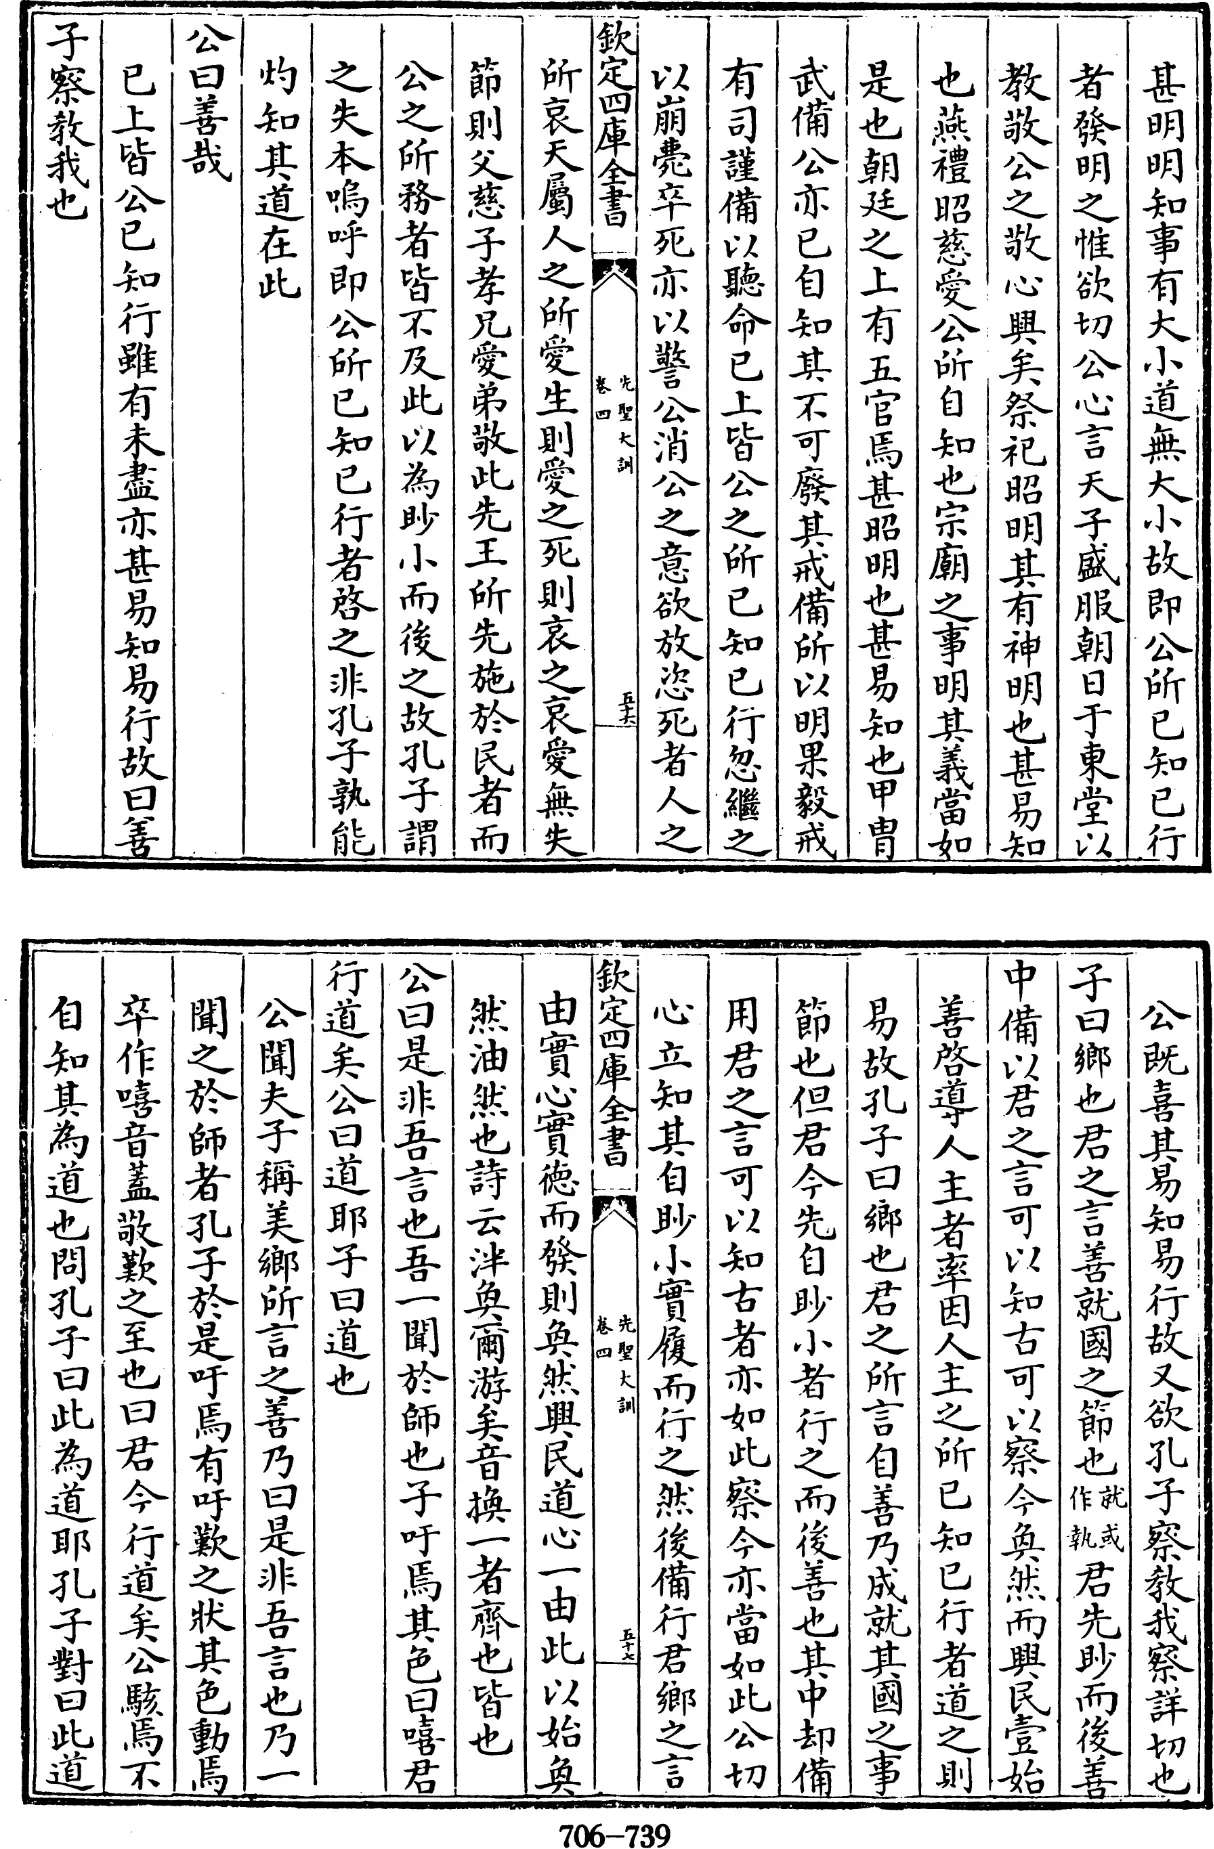 甚明明知事有大小道無大小故即公所已知已行
者發明之惟欲切公心言天子盛服朝日于東堂以
教敬公之敬心興矣祭祀昭明其有神明也甚易知
也燕禮昭慈愛公所自知也宗廟之事明其義當如
是也朝廷之上有五官焉甚昭明也甚易知也甲胄
武備公亦已自知其不可廢其戒備所以明果毅戒
有司謹備以聽命已上皆公之所已知已行忽繼之
以崩薨卒死亦以警公消公之意欲放恣死者人之
欽定四庫全書
先聖大訓
卷四
五十六
所哀天屬人之所愛生則愛之死則哀之哀愛無失
節則父慈子孝兄愛弟敬此先王所先施於民者而
公之所務者皆不及此以為眇小而後之故孔子謂
之失本嗚呼即公所已知已行者啓之非孔子孰能
灼知其道在此
公曰善哉
已上皆公已知行雖有未盡亦甚易知易行故曰善
子察教我也
公既喜其易知易行故又欲孔子察教我察詳切也
子曰鄉也君之言善就國之節也就或作執君先眇而後善
中備以君之言可以知古可以察今奐然而興民壹始
善啓導人主者率因人主之所已知已行者道之則
易故孔子曰鄉也君之所言自善乃成就其國之事
節也但君今先自眇小者行之而後善也其中却備
用君之言可以知古者亦如此察今亦當如此公切
心立知其自眇小實履而行之然後備行君鄉之言
欽定四庫全書
先聖大訓
卷四
五十七
由實心實德而發則奐然興民道心一由此以始奐
然油然也詩云泮奐爾游矣音換一者齊也皆也
公曰是非吾言也吾一聞於師也子吁焉其色曰嘻君
行道矣公曰道耶子曰道也
公聞夫子稱美鄉所言之善乃曰是非吾言也乃一
聞之於師者孔子於是吁焉有吁歎之狀其色動焉
卒作嘻音蓋敬歎之至也曰君今行道矣公駭焉不
自知其為道也問孔子曰此為道耶孔子對曰此道
706-739